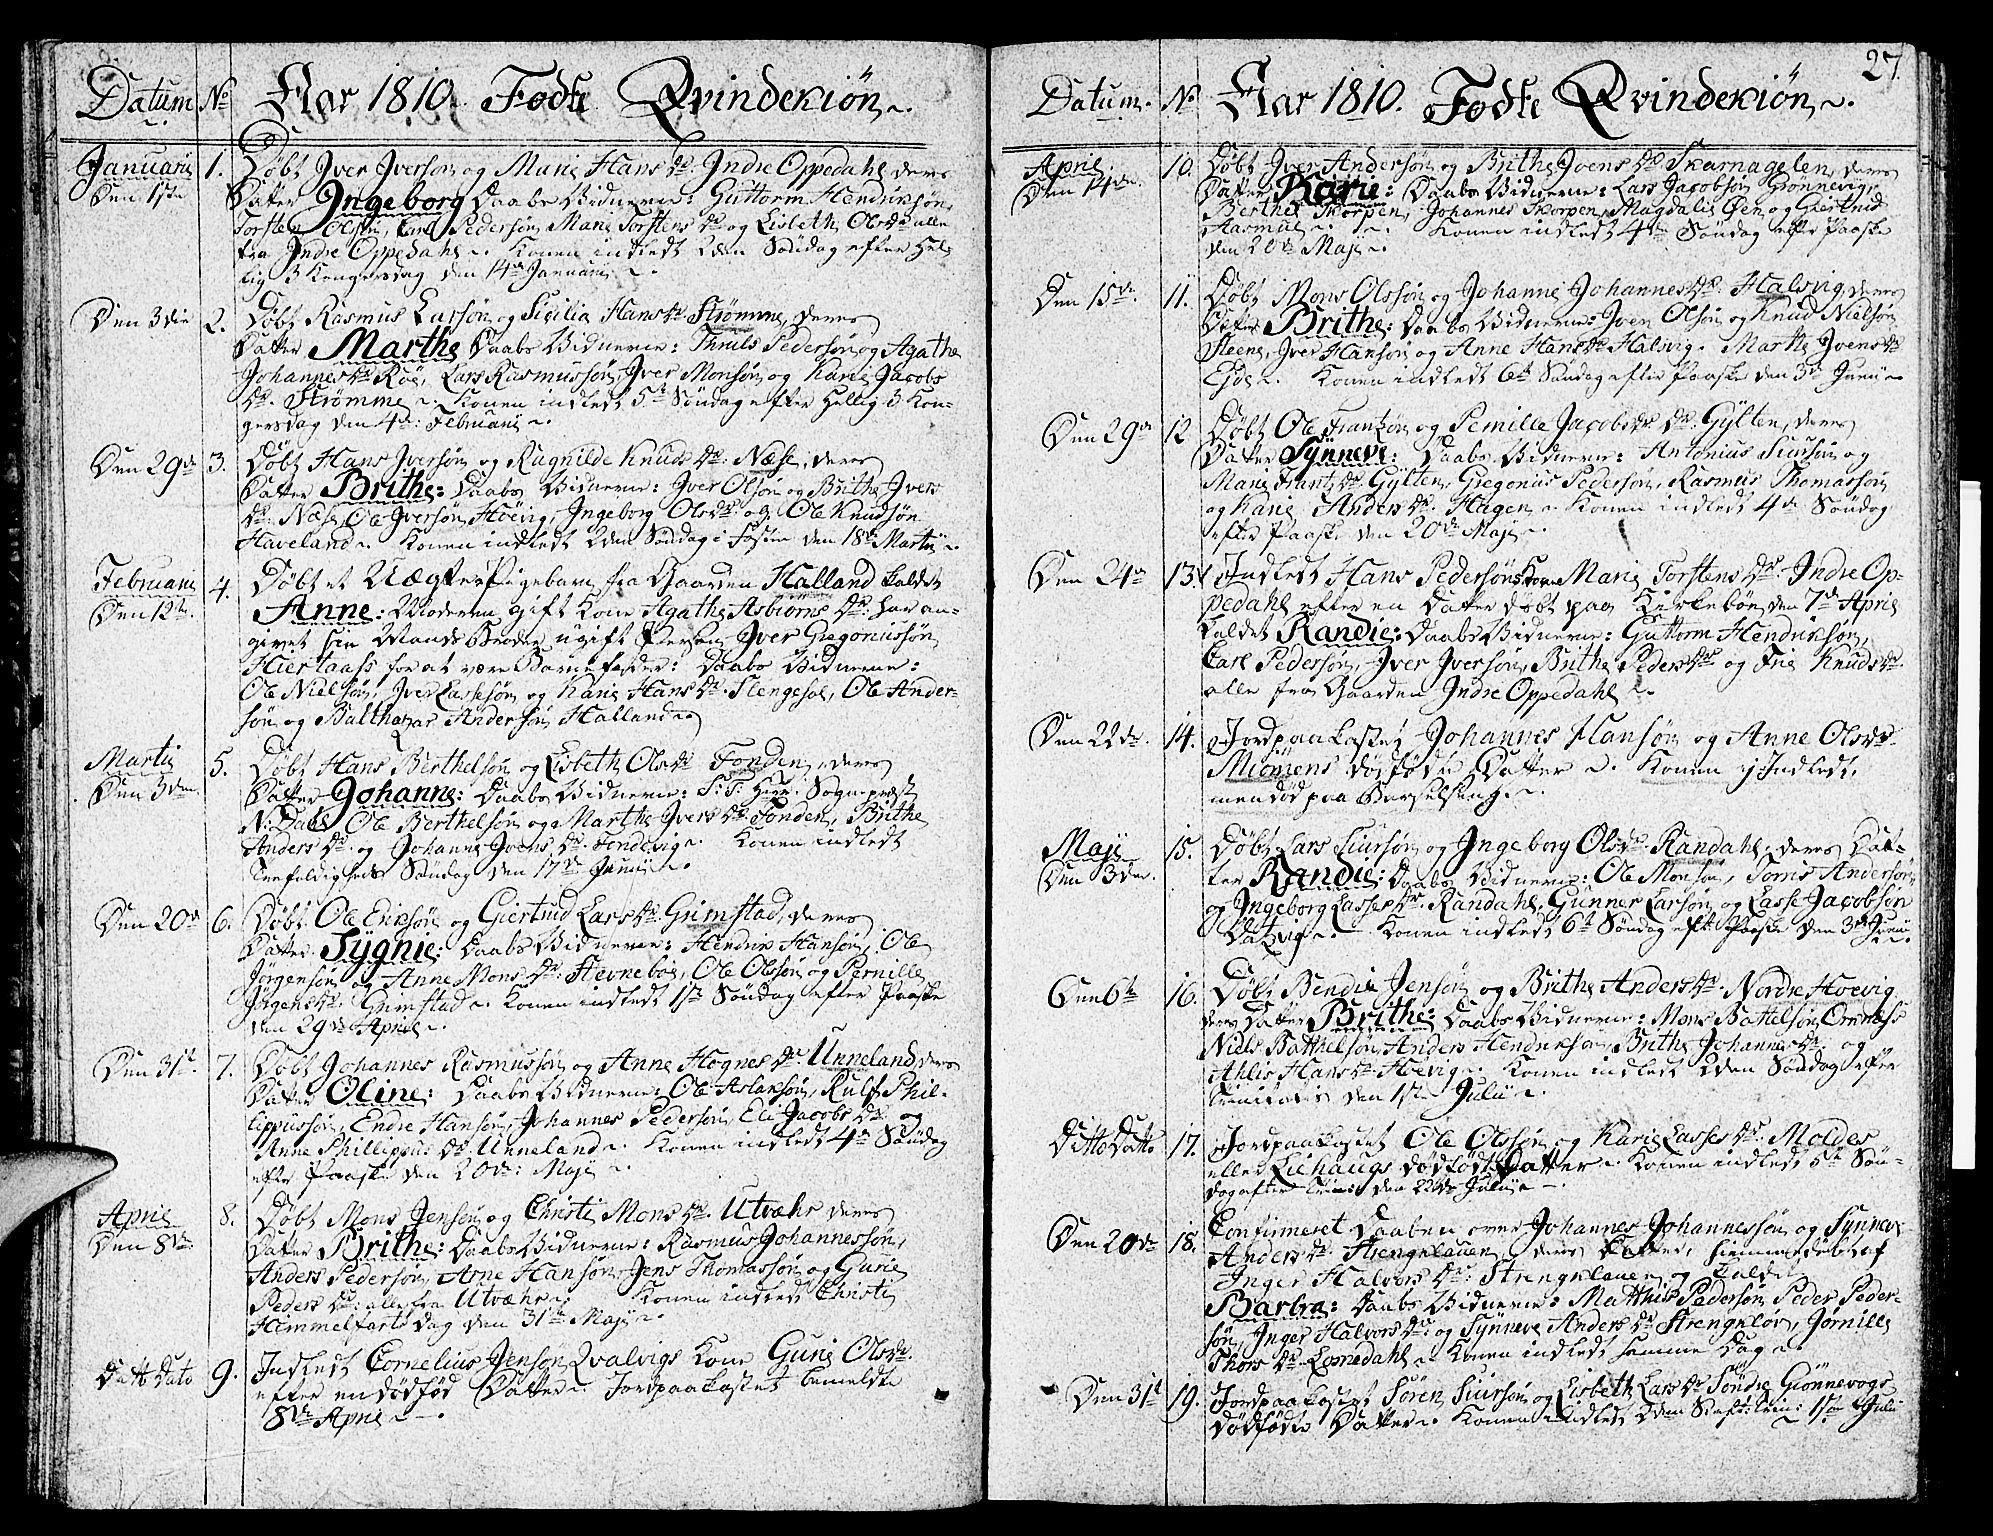 Datum No Aar 1810. Fødte Qvindekiön
Januarii 1. Døbt Iver Iversøn og Marie Hans Dr. Indre Oppedahl deres
Den 1ste Datter Ingeborg Daabs Vidnerne: Guttorm Hendriksøn,
Torsten Olsøn, Carl Pedersøn, Marie Torstens Dr og Lisbeth Ols Dr alle
fra Indre Oppedahl. Konen indledt 2den Søndag efter Hel-
lig 3 Kongersdag den 14de Januarii
Den 3die 2. Døbt Rasmus Larsøn og Sicilia Hans Dr Strømme, deres
Datter Marthe Daabs Vidnerne: Thruls Pedersøn og Agathe
Johannes Dr Røe, Lars Rasmussøn, Iver Monsøn og Karie Jacobs
Dr. Strømme. Konen indledt 5te Søndag efter Hellig 3 Kon-
gersdag den 4de Februarii
Den 29de 3. Døbt Hans Iversøn og Ragnilde Knuds Dr. Næse, deres
Datter Brithe: Daabs Vidnerne: Iver Olsøn og Brithe Ivers
Dr. Næse, Ole Iversøn Høevig, Ingeborg Ols Dr. og Ole Knudsøn
Haveland. Konen indledt 2den Søndag i Faste den 18de Martii
Februarii 4. Døbt et Uægte Pigebarn fra Gaarden Halland kaldet
Den 12te. Anne: Moderen gift Kone Agathe Asbiørns Dr: har an-
givet sin Mands Broder ugift Person Iver Gregoriussøn
Hiertaass for at være Barnefader: Daabs Vidnerne:
Ole Nielsøn, Iver Lassesøn og Karie Hans Dr. Stengesøe, Ole Ander-
søn og Balthazar Andersøn Halland
Martii 5. Døbt Hans Berthelsøn og Lisbeth Ols Dr Fonden, deres
Den 3den Datter Johanne: Daabs Vidnerne: S: T: Herr Sogne præst
N: Dahl, Ole Berthelsøn og Marthe Ivers Dr. Fonden, Brithe
Anders Dr. og Johanne Ivers Dr. Fondevig. Konen indledt
Treefoldigheds Søndag den 17de Junii
Den 20de 6. Døbt Ole Eriksøn og Giertrud Lars Dr. Grimstad, deres
Datter Sygnie: Daabs Vidnerne: Hendrik Hansøn, Ole
Jørgensøn og Anne Mons Dr. Stevneboe, Ole Olssøn og Pernille
Jørgens Dr. Grimstad. Konen indledt 1ste Søndag efter Paaske
den 29de Aprili
Den 31te 7. Døbt Johannes Rasmussøn og Anne Hognes Dr Unneland, deres
Datter Oline: Daabs Vidnerne: Ole Aslaksøn, Rulf Phil-
lippussøn, Endre Hansøn, Johannes Pedersøn, Eli Jacobs Dr og
Anne Phillippus Dr. Unneland. Konen indledt 4de Søndag
efter Paaske den 20de: Maji
Aprili 8. Døbt Mons Jensøn og Christi Mons Dr. Utvæhr deres
Den 8de. Datter Brithe: Daabs Vidnerne: Rasmus Johannessøn,
Anders Pedersøn, Arne Hansøn, Jens Thomassøn og Gurie
Peders Dr: alle fra Utvæhr: Konen indledt Christi
Himmelfarts Dag den 31te Maji
Ditto Dato 9. Indledt Cornelius Jensøn Qvalvigs Kone Gurie Ols Dr.
efter en dødfød Datter. Jordpaakastet bemeldte
8de Aprili
27.
Datum. No Aar 1810. Fødte Qvindekiön
Aprili 10. Døbt Iver Andersøn og Brithe Ivers Dr Skarnagelen, deres
Den 14de. Datter Karie: Daabs Vidnerne: Lars Jacobsøn Giønnevig,
Berthel Skorpen, Johannes Skorpen, Magdalis Øen og Giertrud
Rasmus Konen indledt 4de Søndag efter Paaske
den 20de Maji
Den 15de. 11. Døbt Mons Olssøn og Johanne Johannes Dr. Halsvig, deres
Datter Brithe: Daabs Vidnerne: Iver Olsøn og Knud Nielsøn
Steene, Iver Hansøn og Anne Hans Dr Halsvig. Marthe Ivers Dr
Eide. Konen indledt 6te Søndag efter Paaske den 3de Junii
Den 29de 12 Døbt Ole Frantzøn og Pernille Jacobs Dr. Gylten, deres
Datter Synneve: Daabs Vidnerne: Antonius Siursøn og
Marie Frantz Dr. Gylten, Gregorius Pedersøn, Rasmus Thomassøn
og Karie Anders Dr. Hagen. Konen indledt 4de Søndag
efter Paaske den 20de Maji
Den 24de 13. Indledt Hans Pedersøns Kone Marie Torstens Dr. Indre Op-
pedahl efter en Datter døbt paa Kirkebøe den 7de Aprili
kaldet Randie: Daabs Vidnerne: Guttorm Hendriksøn,
Carl Pedersøn, Iver Iversøn, Brithe Peders Dr og Frie Knuds Dr.
alle fra Gaarden Indre Oppedahl
Den 22de. 14. Jordpaakastet Johannes Hansøn og Anne Ols Dr.
Miømens dødfødte Datter. Konen ej Indledt,
men død paa Barselseng.
Maji 15. Døbt Lars Siursøn og Ingeborg Ols Dr. Randahl, deres Dat-
Den 3den. ter Randie: Daabs Vidnerne: Ole Monsøn, Torris Andersøn,
og Ingeborg Lasses Dr. Randahl, Gunner Larsøn og Lasse Jacobsøn
Dalvig. Konen indledt 6te Søndag efter Paaske den 3de Junii
Den 6te 16. Døbt Bendix Jensøn og Brithe Anders Dr. Nordre Hoevig
deres Datter Brithe: Daabs Vidnerne: Mons Battelsøn Ornnæss
Niels Batthelsøn, Anders Hendriksøn, Brithe Johannes Dr. og
Ahlis Hans Dr Hoevig. Konen indledt 2den Søndag efter
Trinitatis den 1ste Julii
Ditto Datto 17. Jordpaakastet Ole Olssøn og Karie Lasses Dr. Moldes
eller Liehaugs dødfødte Datter. Konen indledt 5te Søn-
dag efter Trin: den 22de Julii
Den 20de 18. Confirmeret Daaben over Johannes Johannessøn og Synneve
Anders Dr. Strengklauen, deres Datter, hjemmedøbt af
Inger Halvors Dr: Strengklauen og kaldet
Barbra: Daabs Vidnerne: Matthis Pedersøn, Peder Peder-
søn, Inger Halvors Dr og Synneve Anders Dr Strengkløv, Jørnille
Thors Dr. Esmedahl. Konen indledt samme Dag
Den 31te 19. Jordpaakastet Søren Siursøn og Lisbeth Lars Dr Søndre Giønnevogs
Dødfødte Datter. Konen indledt 2den Sønd: Trin: 1ste Julii